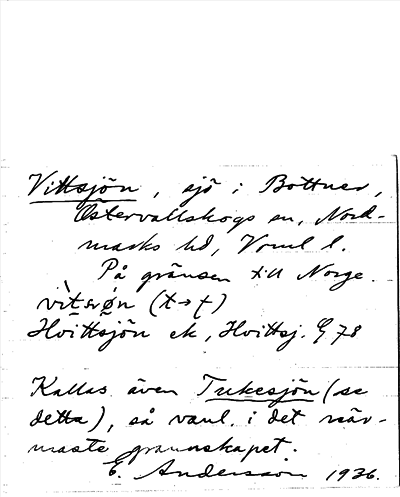 Vittsjön, sjö i Bottnen,
Östervallskogs sn, Nord-
marks hd, Vrml l.
På gränsen till Norge.
vìtsøn (t→t)
Hvittsjön ek, Hvittsj. G 78
Kallas även Tukesjön (se
detta), så vanl. i det när-
maste grannskapet.
E. Andersson 1936.